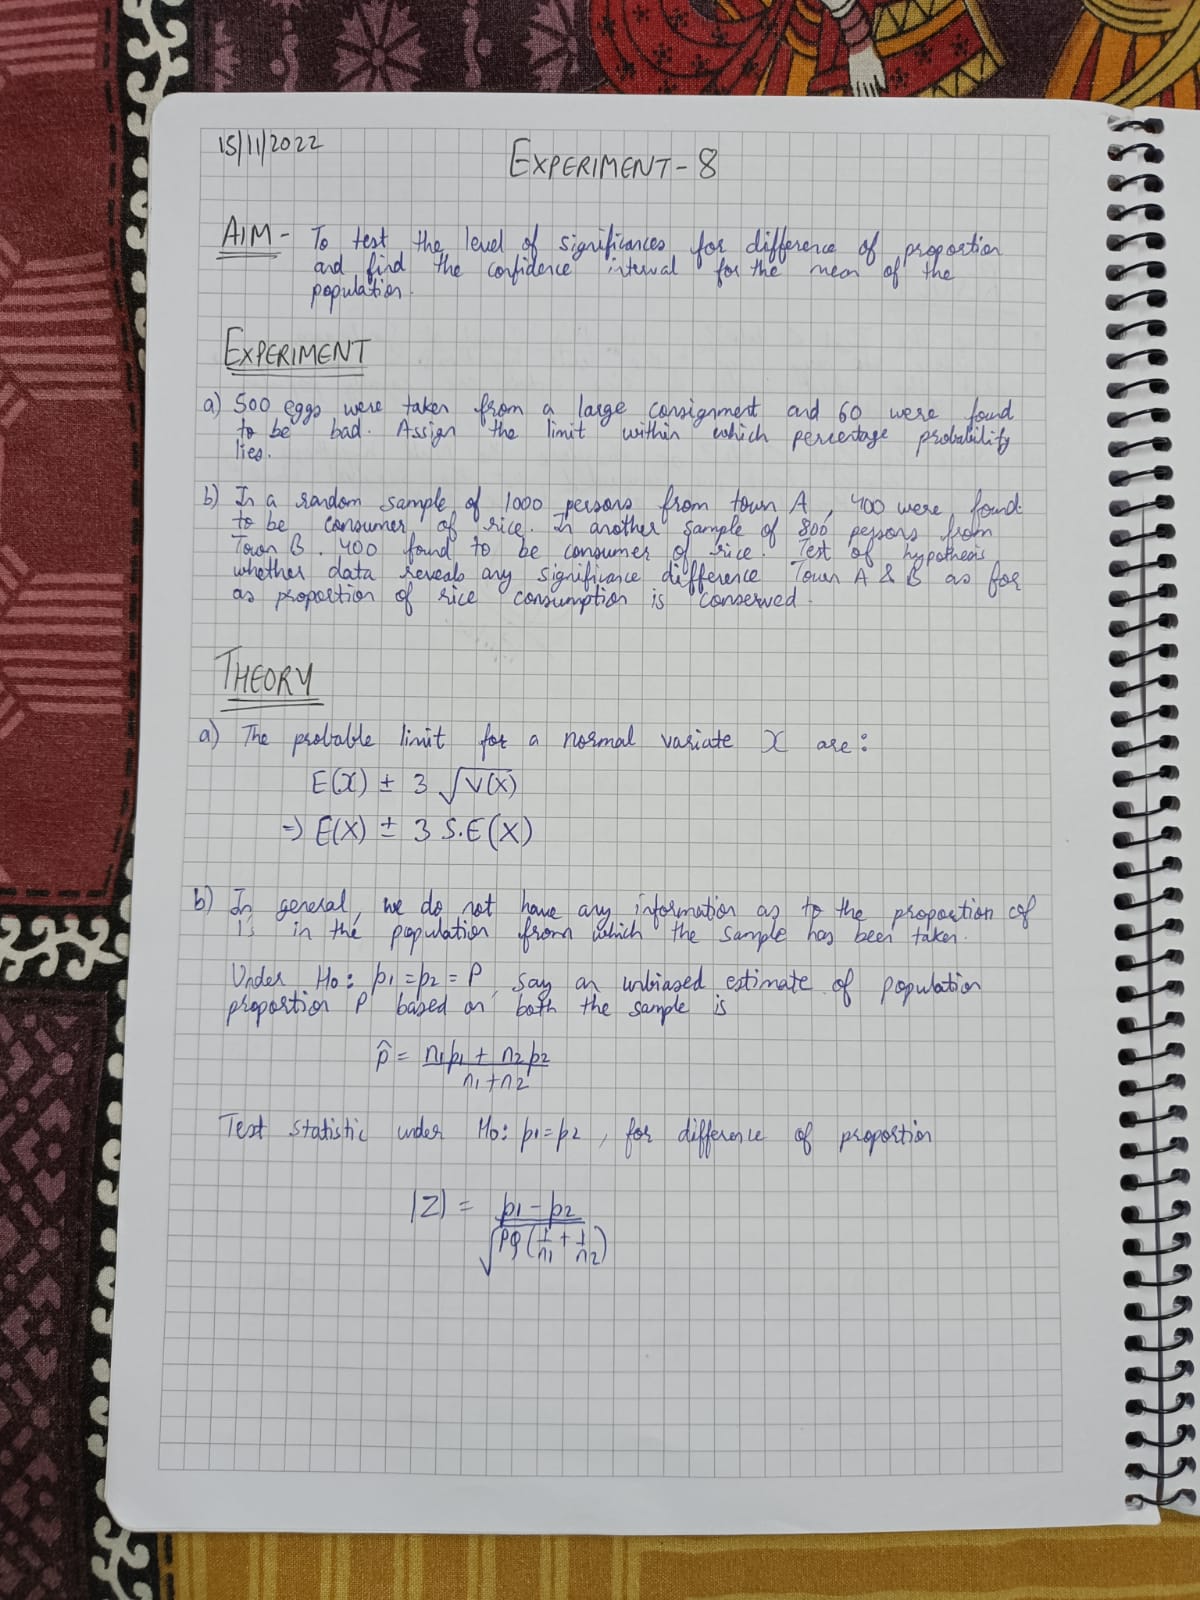 15/11/2022
EXPERIMENT-8
AIM - To test the level of significances for difference of proportion
and find the confidence interval for the mean of the
population.
EXPERIMENT
a) 500 eggs were taken from a large consignment and 60 were found
to be bad. Assign the limit within which percentage probability
lies.
b) In a random sample of 1000 persons from town A, 400 were found
to be consumer of rice. In another sample of 800 persons from
Town B. 400 found to be consumer of rice. Test of hypothesis
whether data reveals any significance difference Town A & B as for
as proportion of rice consumption is conserved.
THEORY
a) The probable limit for a normal variate X are:
E(X) ± 3 √V(X)
⇒ E(X) ± 3 S.E(X)
b) In general, we do not have any information as to the proportion of
1's in the population from which the sample has been taken.
Under Ho: p1 = p2 = P, say an unbiased estimate of population
proportion P based on both the sample is
p̂ = n1p1 + n2p2
n1+n2
Test statistic under Ho: p1=p2, for difference of proportion
|Z| = p1 - p2
√PQ(1/n1 + 1/n2)